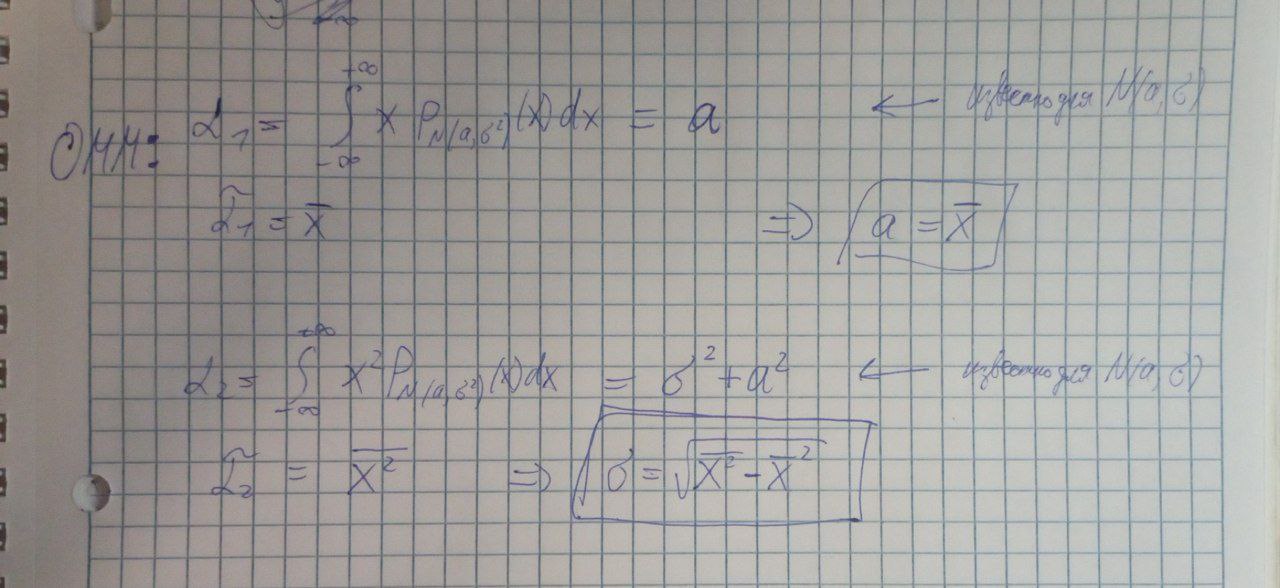 ОММ: α₁ = ∫_{-∞}^{+∞} x P_{N(a,σ²)}(x)dx = a ← известно для N(a,σ)
α̃₁ = x̅ ⇒ a = x̅
α₂ = ∫_{-∞}^{+∞} x² P_{N(a,σ²)}(x)dx = σ² + a² ← известно для N(a,σ)
α̃₂ = \overline{x²} ⇒ σ = √(\overline{x²} - x̅²)